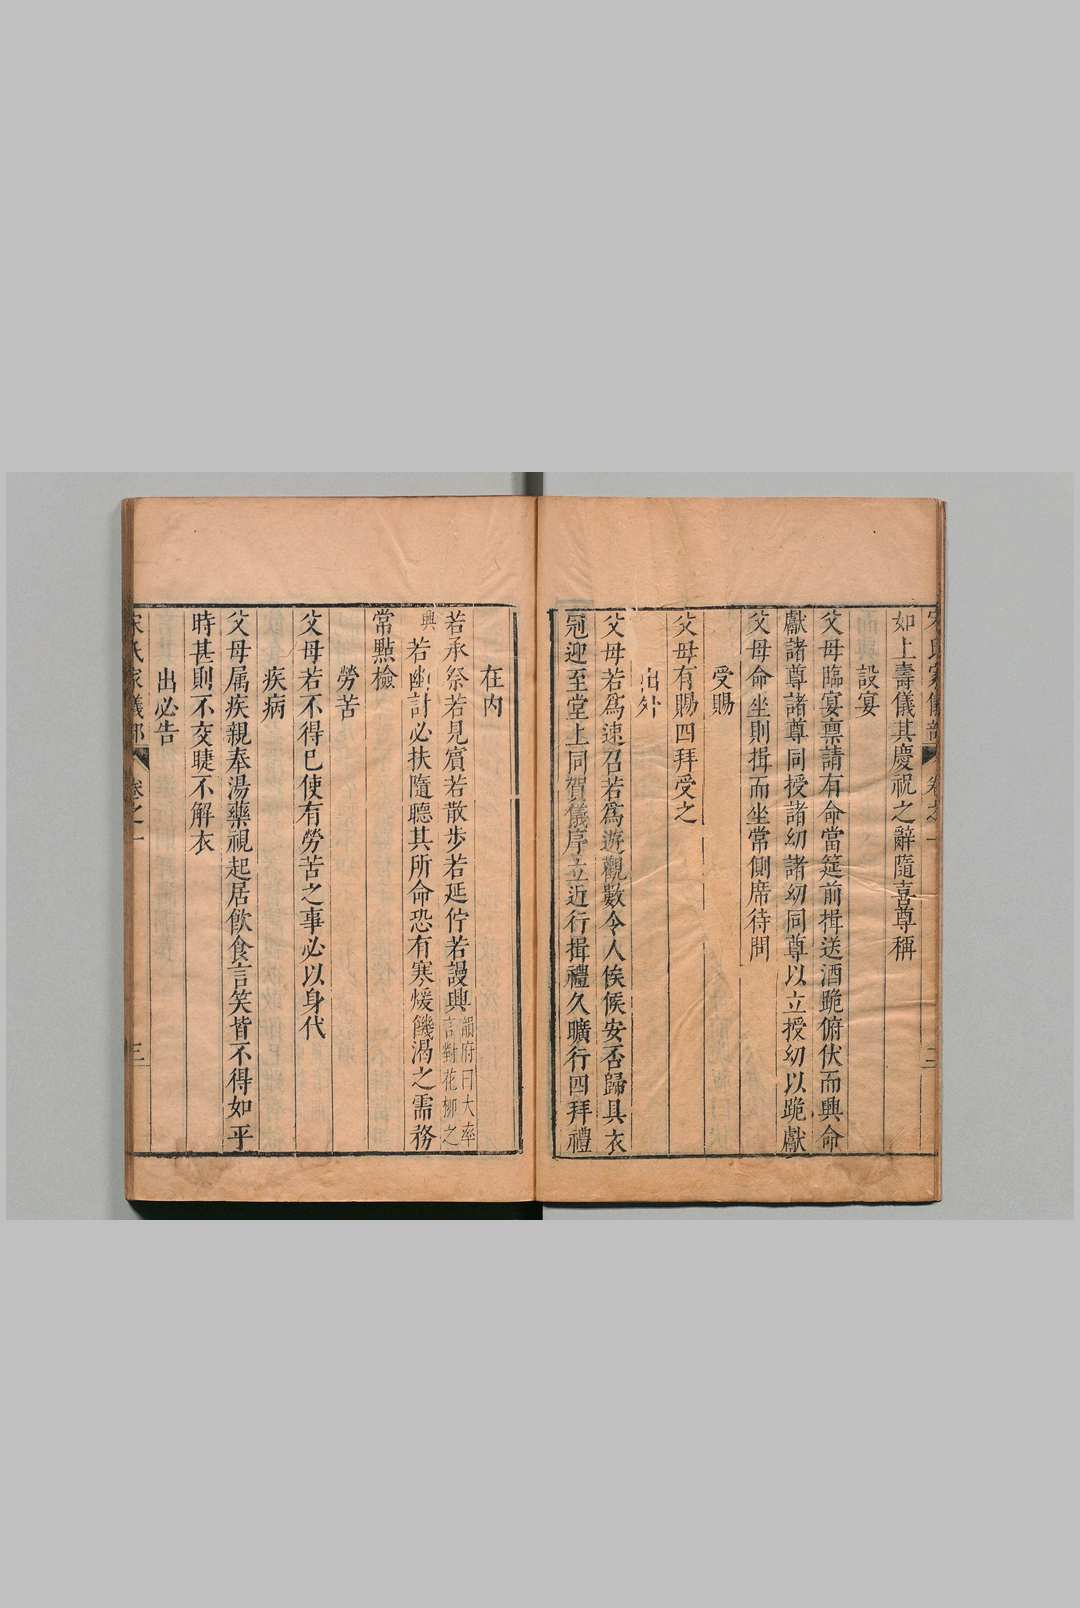 宋氏家儀部 卷之一 二
如上壽儀其慶祝之辭隨喜尊稱
設宴
父母臨宴稟請有命當筵前揖送酒跪俯伏而興命
獻諸尊諸尊同授諸幼諸幼同尊以立授幼以跪獻
父母命坐則揖而坐常側席待問
受賜
父母有賜四拜受之
出外
父母若爲速召若爲遊觀數令人俟候安否歸具衣
冠迎至堂上同賀儀序立近行揖禮久曠行四拜禮
在內
若承祭若見賓若散步若延佇若謾興韻府曰大率言對花柳之
興 若幽討必扶隨聽其所命恐有寒煖饑渴之需務
常點檢
勞苦
父母若不得已使有勞苦之事必以身代
疾病
父母属疾親奉湯藥視起居飲食言笑皆不得如乎
時甚則不交睫不解衣
出必告
宋氏家儀部 卷之一 三